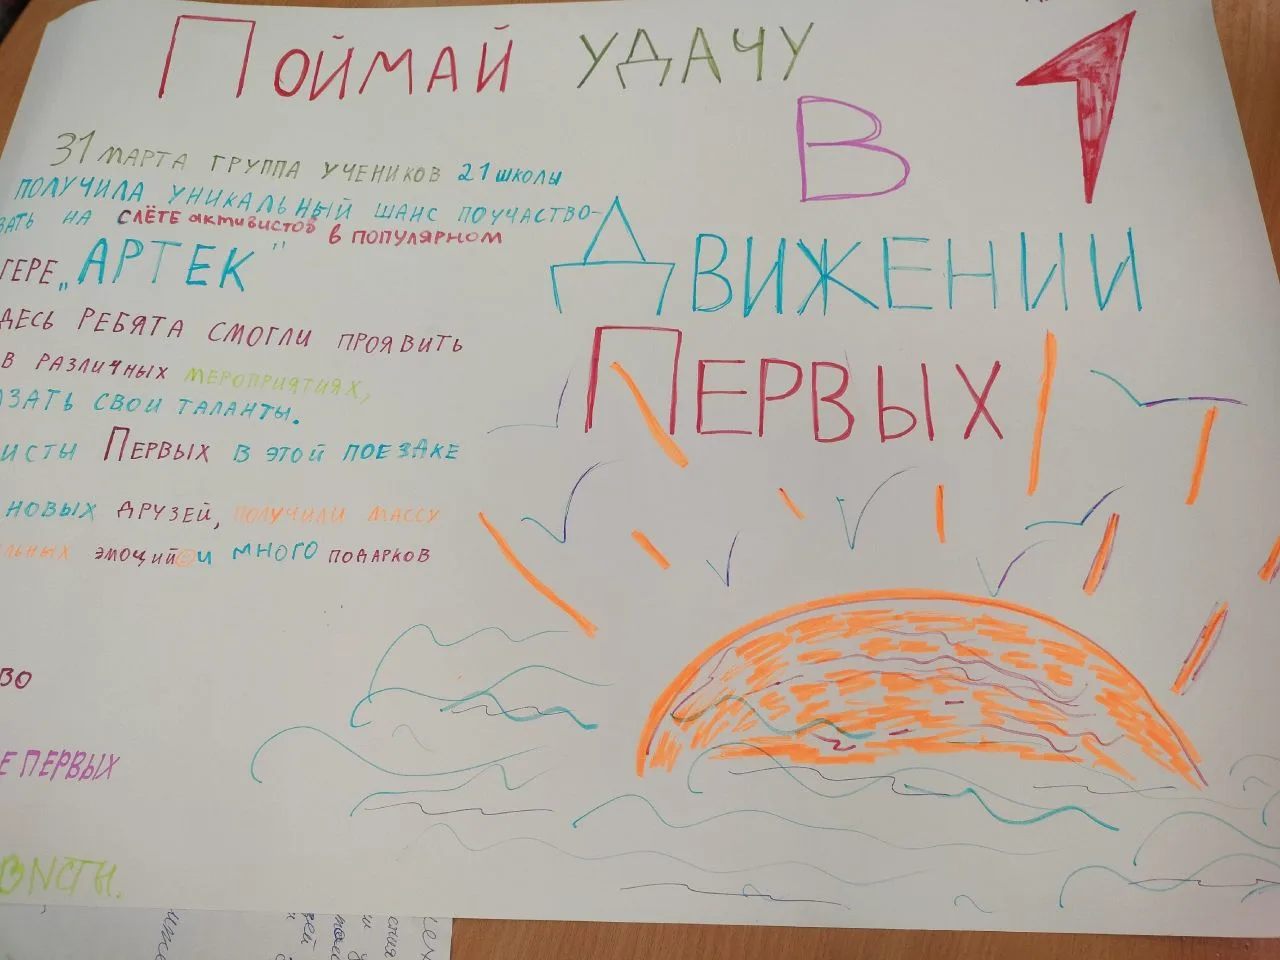 Поймай удачу
в
Движении
Первых
31 марта группа учеников 21 школы
получила уникальный шанс поучаство-
вать на слёте активистов в популярном
гере „АРТЕК"
десь ребята смогли проявить
в различных мероприятиях,
азать свои таланты.
исты Первых в этой поезаке
новых друзей, получили массу
льных эмоций и много подарков
во
е Первых